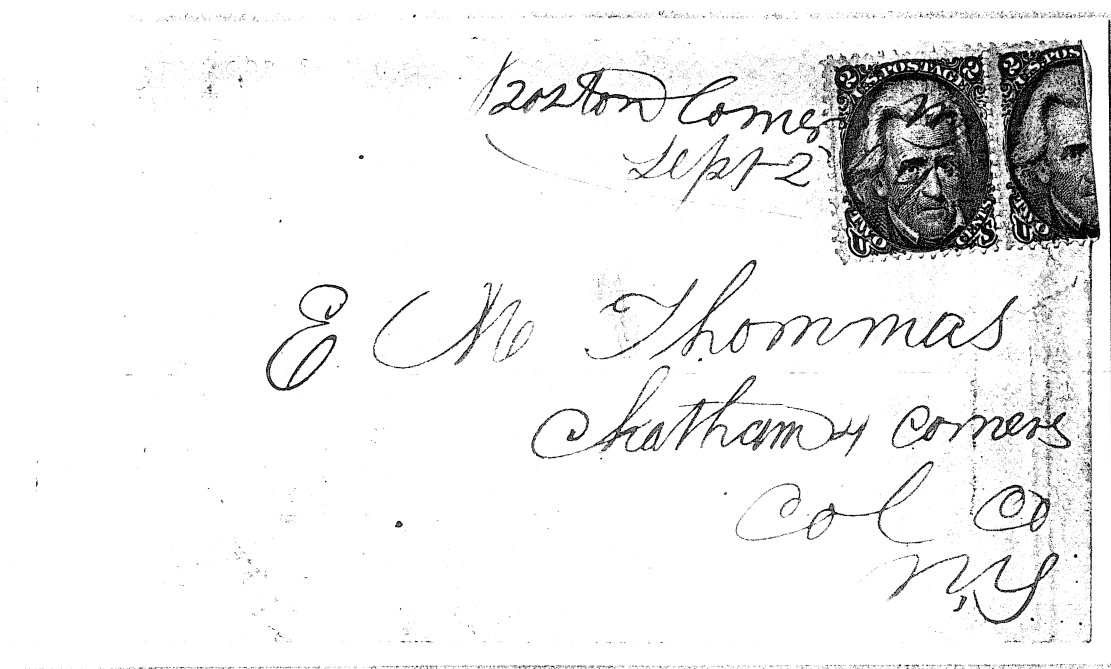 Boston Corner
Sept 2
2 U.S. POSTAGE 2
2 U.S. POS
TWO CENTS
U S
TWO
U
E M Thommas
Chatham 4 Corners
Col Co
N,Y